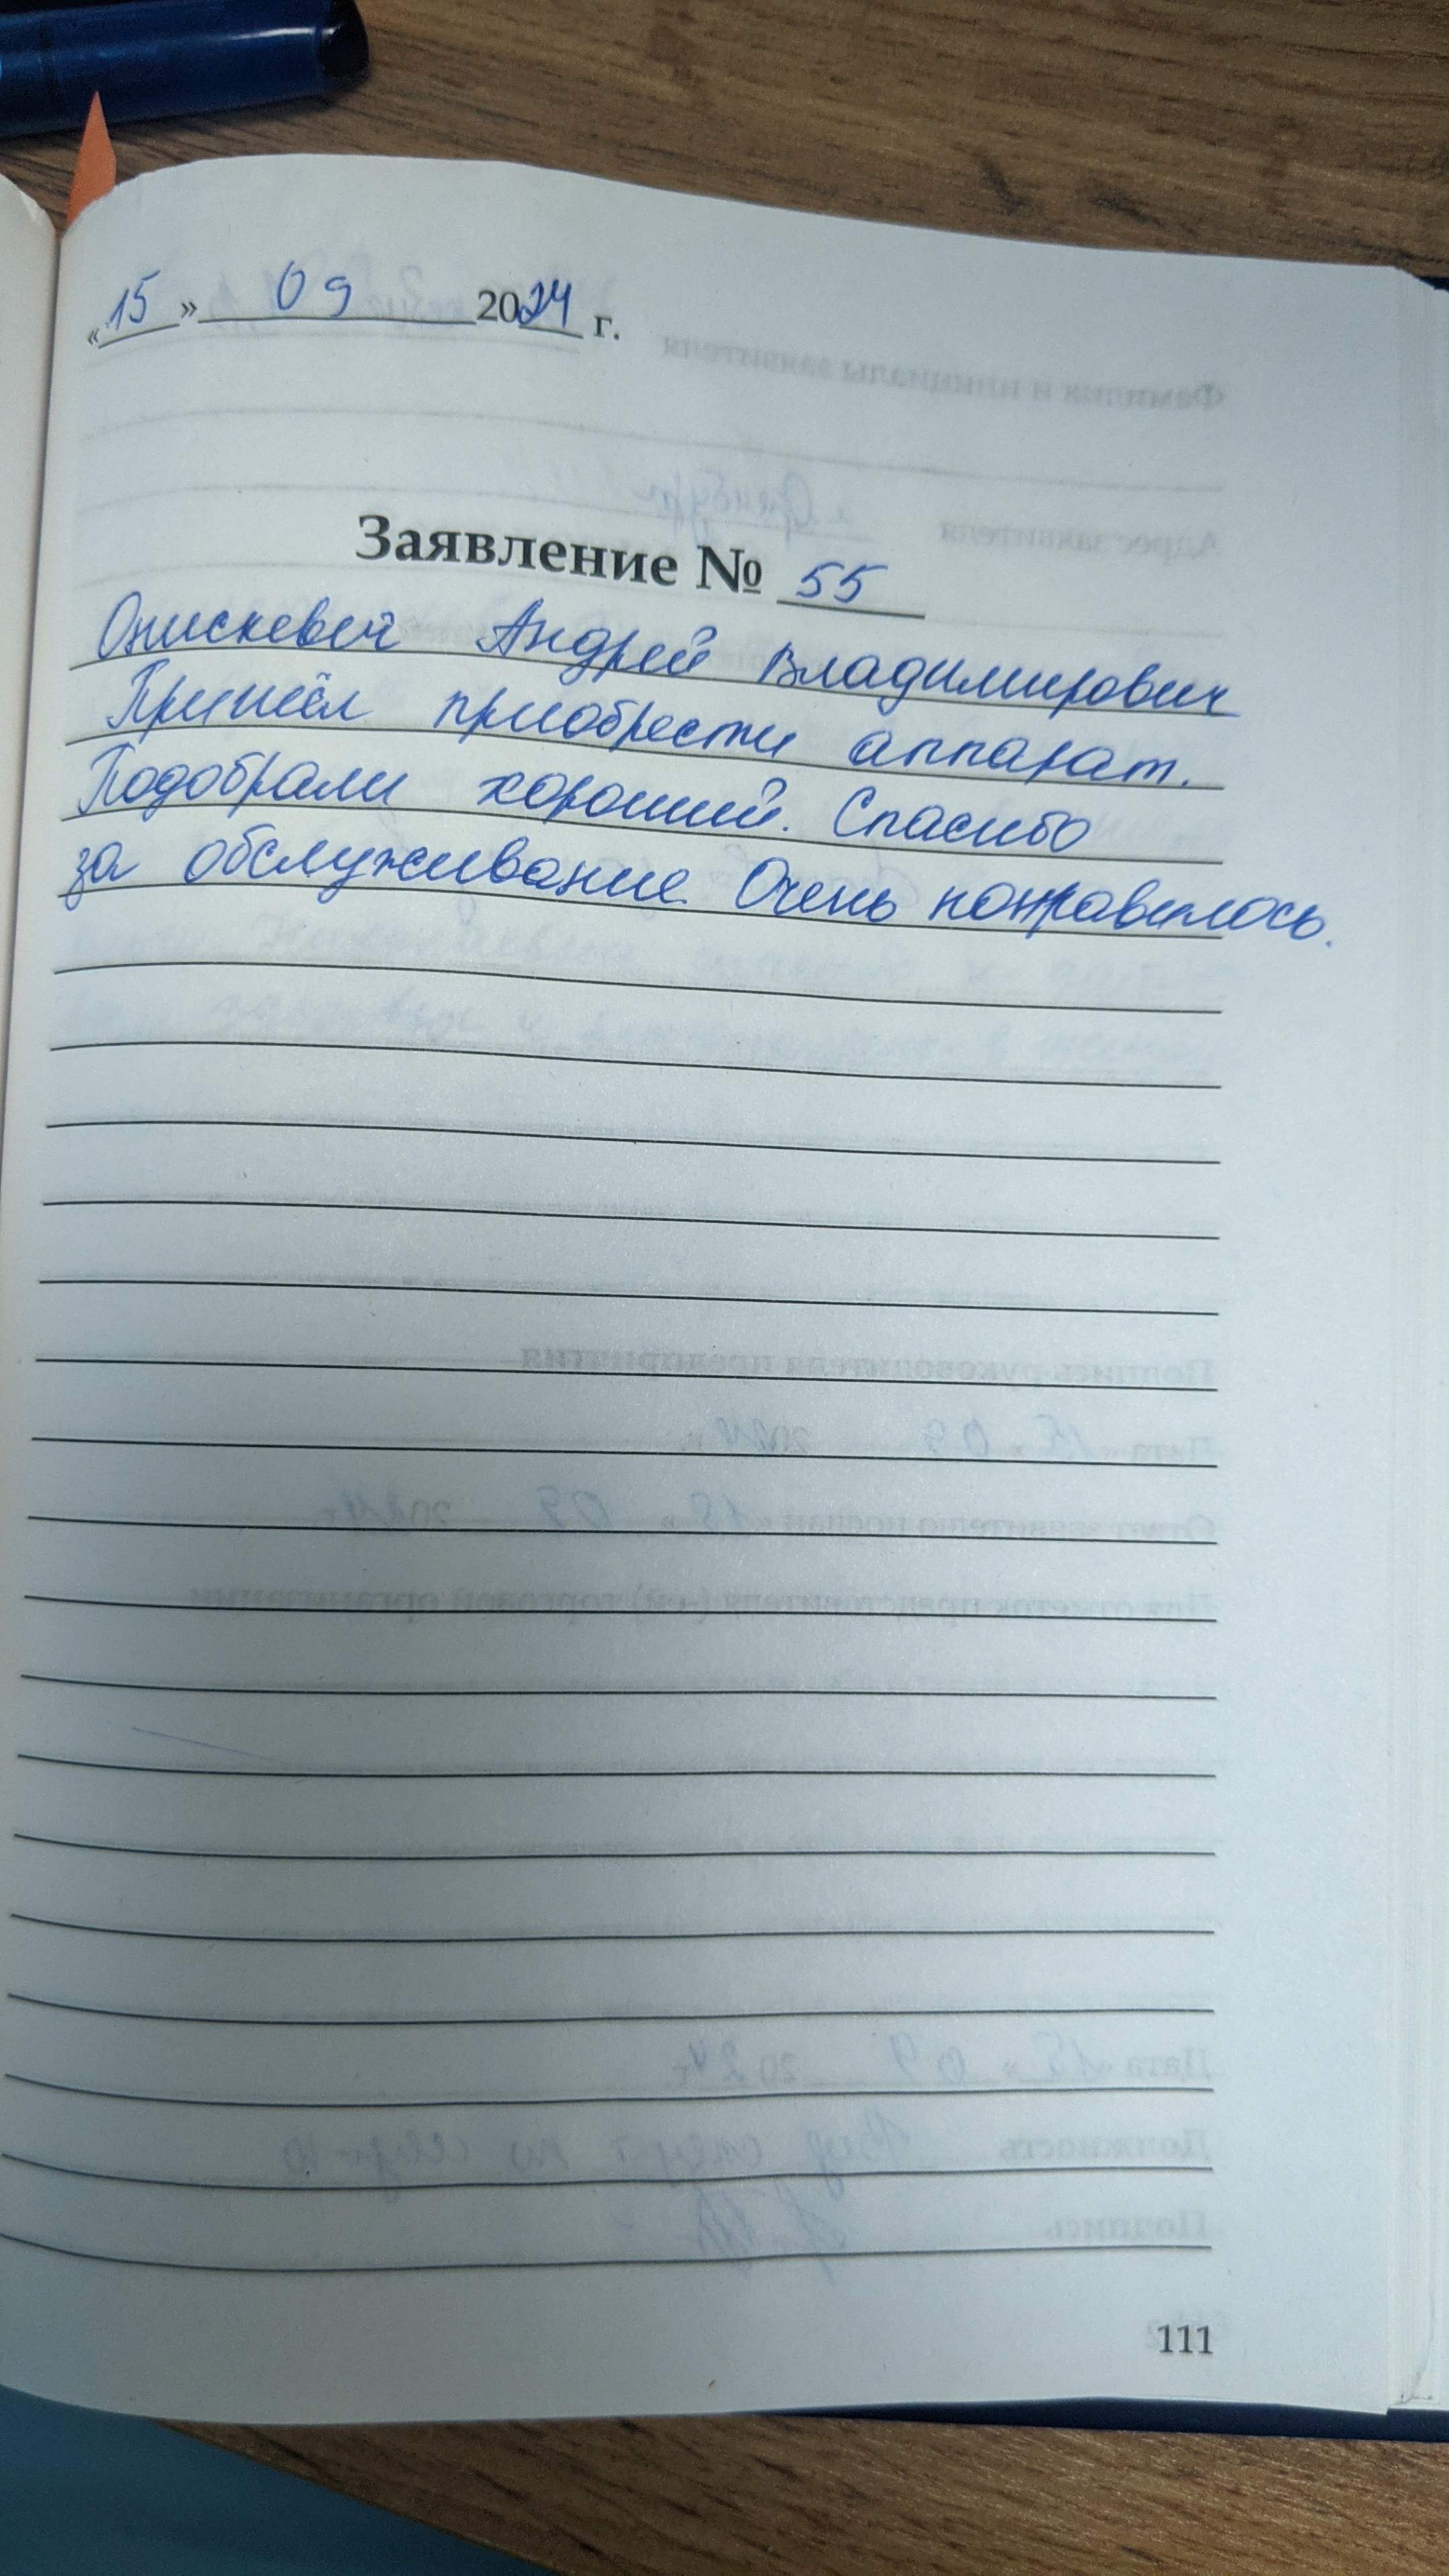 «15» 09 2024 г.
Заявление № 55
Онискевич Андрей Владимирович
Пришёл приобрести аппарат.
Подобрали хороший. Спасибо
за обслуживание. Очень понравилось.
111